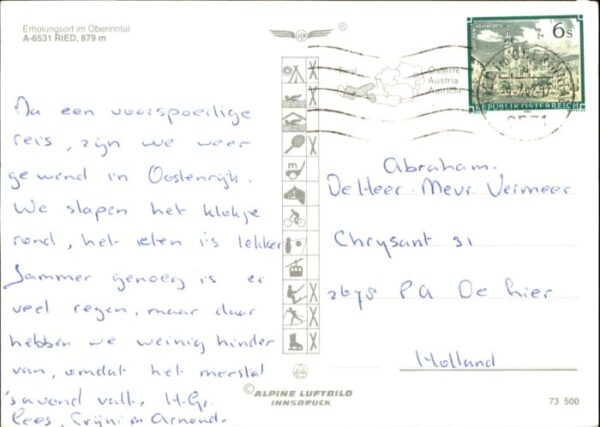 Erholungsort im Oberinntal
A-6531 RIED, 879 m
®
6s
REPUBLIK ÖSTERREICH
Tirol
Österre
Austria
Autrich
Na een voorspoedige
reis, zijn we weer
gewend in Oostenrijk.
We slapen het klokje
rond, het eten is lekker
Jammer genoeg is er
veel regen, maar daar
hebben we weinig hinder
van, omdat het meestal
's avond valt. H.G.
Cees, Trijni en Arnoud.
Abraham.
De Heer - Mevr. Vermeer
Chrysant 31
2678 PA De Lier
Holland
© ALPINE LUFTBILD
INNSBRUCK
73 500